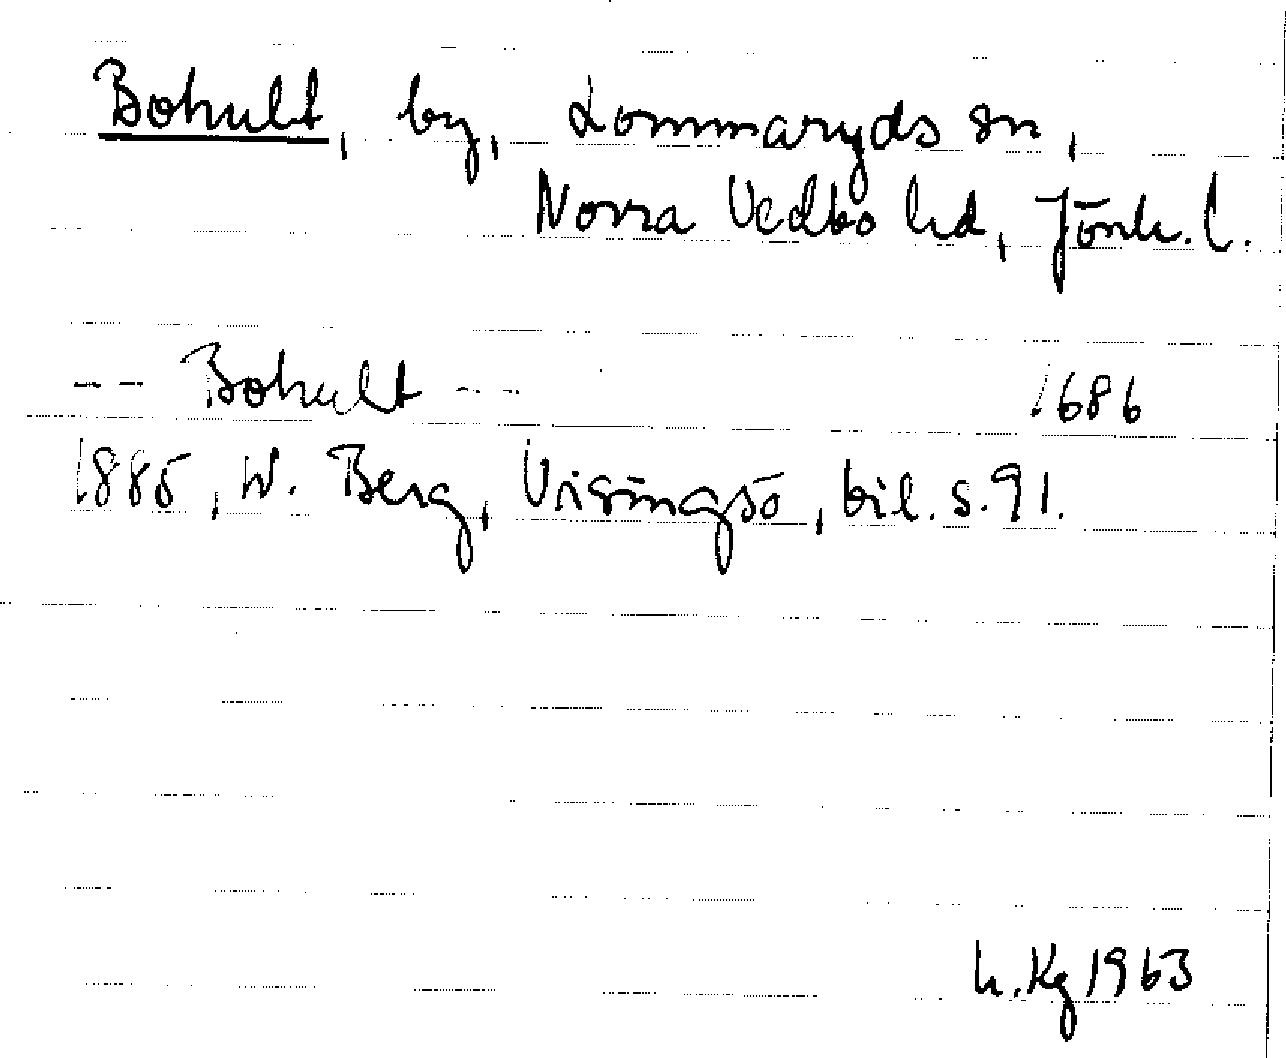 Bohult, by, Lommaryds sn,
Norra Vedbo hd, Jönk. l.
-- Bohult -- 1686
1885, W. Berg, Visingsö, bil. s. 91.
h. Kg 1963